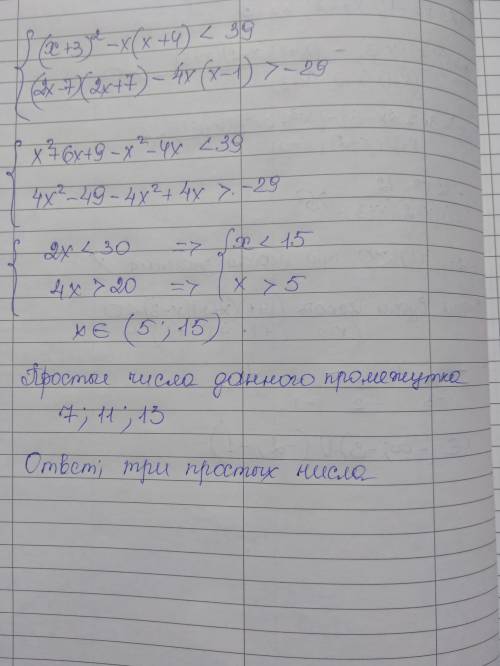 (x+3)² - x(x+4) < 39
(2x-7)(2x+7) - 4x(x-1) > -29
x²+6x+9-x²-4x < 39
4x²-49-4x²+4x > -29
2x < 30 => x < 15
4x > 20 => x > 5
x ∈ (5; 15)
Простые числа данного промежутка
7; 11; 13
Ответ; три простых числа